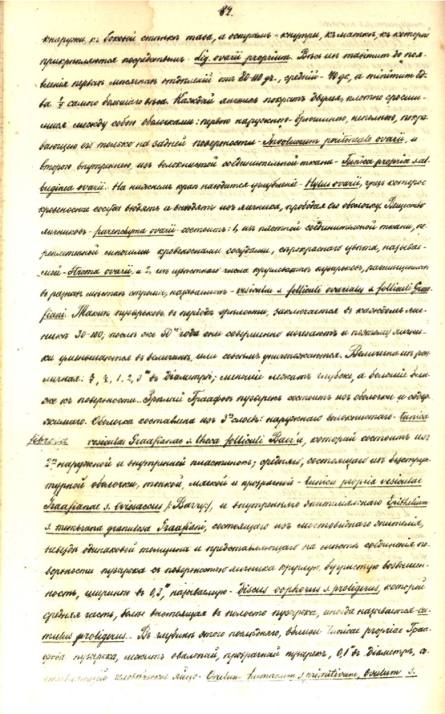 84.
кнаружи, к боковой стенкѣ таза, а острымъ - кнутри, къ маткѣ, къ которой
прикрѣпляются посредствомъ - Lig. ovarii proprium. Вѣсъ ихъ maximum до по-
явленія первыхъ мѣсячныхъ отдѣленій средній
ва 1/3 самаго большаго вѣса. Каждый яичникъ покрытъ двумя, плотно сросши-
мися между собою оболочками: первою наружною - брюшинною, неполною, покры-
вающею ихъ только на задней поверхности - Involucrum peritoneale ovarii, и
второю внутреннею изъ волокнистой соединительной ткани - Tunica propria s. al-
buginea ovarii. На нижнемъ краѣ находится углубленіе - Hylus ovarii, чрезъ которое
кровеносные сосуды входятъ и выходятъ изъ яичника, прободая его оболочку. Вещество
яичниковъ - parenchyma ovarii состоитъ: 1, изъ плотной соединительной ткани,
многими кровеносными сосудами, цвѣта, называе-
мой - Stroma ovarii, и 2, изъ числа пузырьковъ,
въ разныхъ мѣстахъ стромы, называемыхъ - vesiculae s. folliculi ovariales s. folliculi Graa-
fiani. Такихъ пузырьковъ въ періодѣ зрѣлости, заключается въ каждомъ яич-
никѣ 30-100, послѣ же 50го года они совершенно исчезаютъ и потому яични-
ки уменьшаются въ величинѣ, или совсѣмъ уничтожаются. Величина ихъ раз-
личная: 1, 2, 3''' въ діаметрѣ; меньшіе лежатъ глубже, а большіе бли-
же къ поверхности. Зрѣлый Граафовъ пузырекъ состоитъ изъ оболочки и содер-
жимаго. Оболочка составлена изъ 3хъ слоевъ: наружнаго волокнистаго - tunica
fibrosa vesiculae Graafianae s. theca folliculi Baer'a, который состоитъ изъ
2хъ наружной и внутренней пластинокъ; средняго, состоящаго изъ безструк-
турной оболочки, тонкой, мягкой и прозрачной - tunica propria vesiculae
Graafianae s. ovisaccus (Barry), и внутренняго эпителіальнаго Epithelium
s. membrana granulosa Graafiani, состоящаго изъ мостовиднаго эпителія,
не вездѣ одинаковой толщины и представляющаго на мѣстѣ соединенія по-
верхности пузырька съ поверхностью яичника круглую, бугристую возвышен-
ность, шириною въ 0,3''' называемую - Discus oophorus s. proligerus, которой
средняя часть, болѣе выстоящая въ полость пузырька, иногда называется cu-
mulus proligerus. Въ глубинѣ этого послѣдняго, вблизи tunicae propriae Граа-
фова пузырька, лежитъ овальный, прозрачный пузырекъ, 0,1''' въ діаметрѣ, со-
ставляющій человѣческое яйцо - Ovulum humanum s. primitivum, ovulum s.